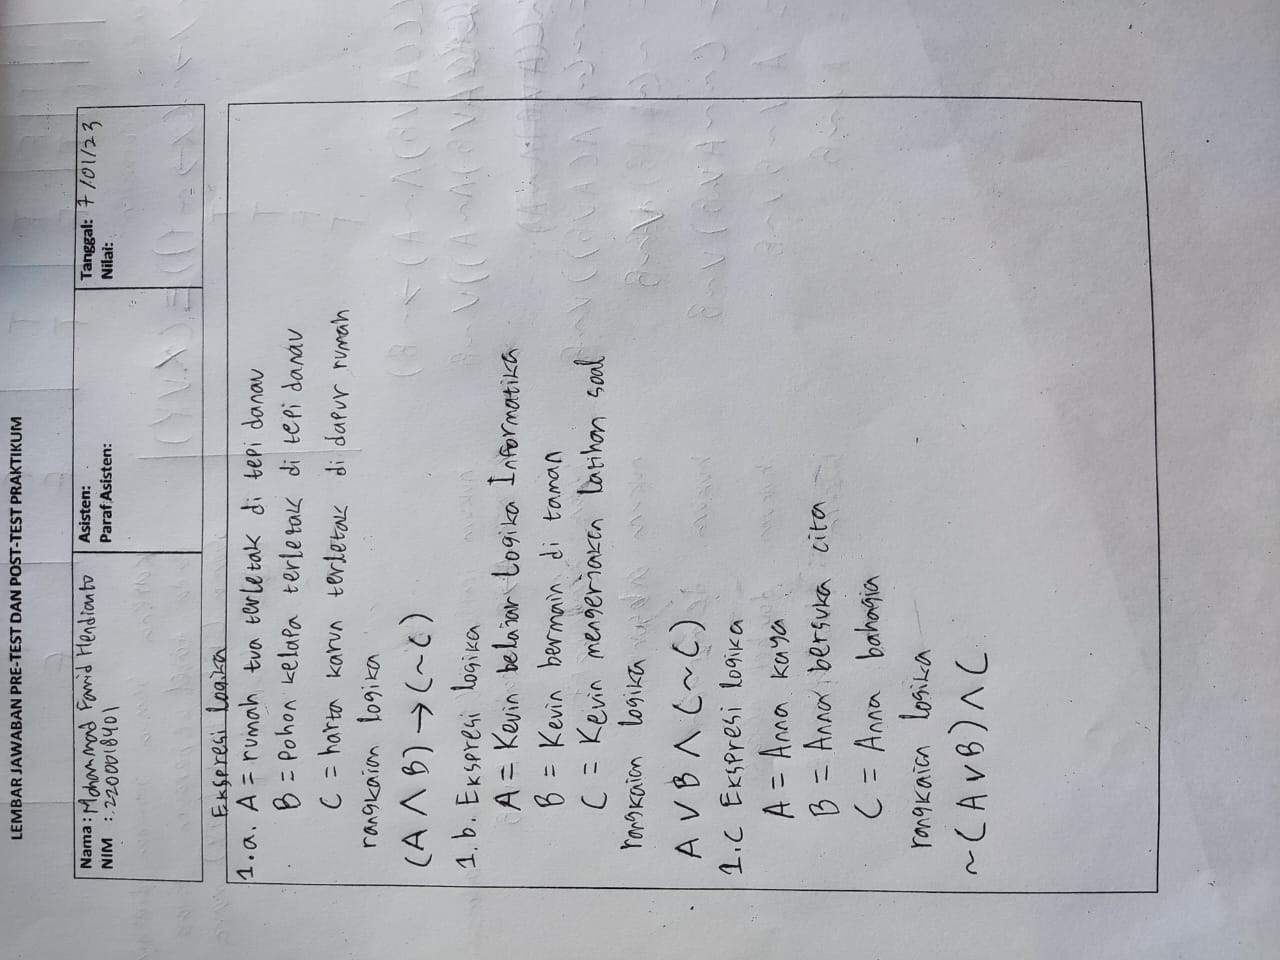 LEMBAR JAWABAN PRE-TEST DAN POST-TEST PRAKTIKUM
Nama : Mohammad Farrid Hendianto
NIM : 2200018401
Asisten:
Paraf Asisten:
Tanggal: 7/01/23
Nilai:
Ekspresi logika
1.a. A = rumah tua terletak di tepi danau
B = pohon kelapa terletak di tepi danau
C = harta karun terletak di dapur rumah
rangkaian logika
(A ∧ B) → (~C)
1.b. Ekspresi logika
A = Kevin belajar Logika Informatika
B = Kevin bermain di taman
C = Kevin mengerjakan latihan soal
rangkaian logika
A ∨ B ∧ (~C)
1.C Ekspresi logika
A = Anna kaya
B = Anna bersuka cita
C = Anna bahagia
rangkaian logika
~(A ∨ B) ∧ C